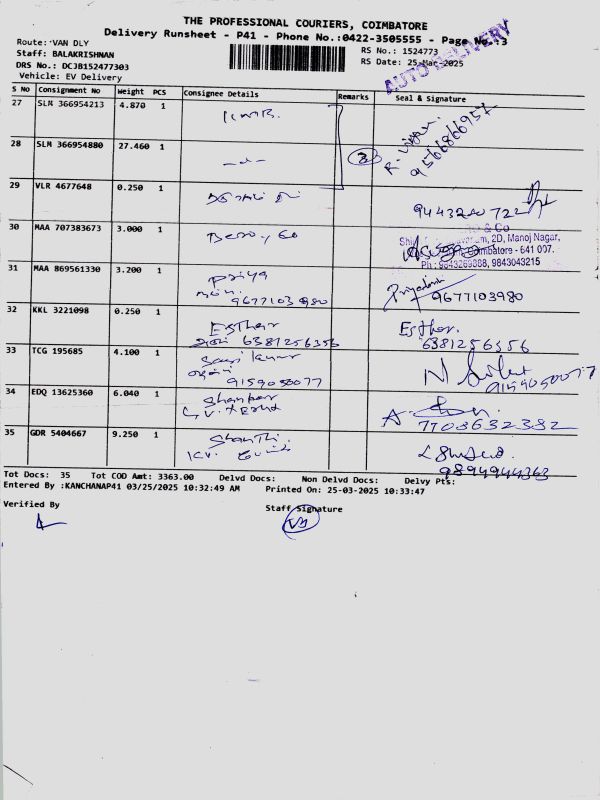 THE PROFESSIONAL COURIERS, COIMBATORE
Delivery Runsheet - P41 - Phone No.:0422-3505555 - Page No.:3
AUTO DELIVERY
Route: VAN DLY
Staff: BALAKRISHNAN
DRS No.: DCJB152477303
Vehicle: EV Delivery
RS No.: 1524773
RS Date: 25-Mar-2025
S No Consignment No Weight PCS Consignee Details Remarks Seal & Signature
27 SLM 366954213 4.870 1 KMB.
28 SLM 366954880 27.460 1 —"— 2 9566866957
29 VLR 4677648 0.250 1 9443200722
30 MAA 707383673 3.000 1 & Co
2D, Manoj Nagar,
Coimbatore - 641 007.
Ph : 9843269888, 9843043215
31 MAA 869561330 3.200 1 Priya Priyadarshi
9677103980 9677103980
32 KKL 3221098 0.250 1 Esther Esther.
6381256356 6381256356
33 TCG 195685 4.100 1 Sasi Kumar N
9159050077 9159050077
34 EDQ 13625360 6.040 1 Shankar A
7708632382
35 GDR 5404667 9.250 1 Shanthi.
K.V. 9894944363
Tot Docs: 35 Tot COD Amt: 3363.00 Delvd Docs: Non Delvd Docs: Delvy Pts:
Entered By :KANCHANAP41 03/25/2025 10:32:49 AM Printed On: 25-03-2025 10:33:47
Verified By Staff Signature